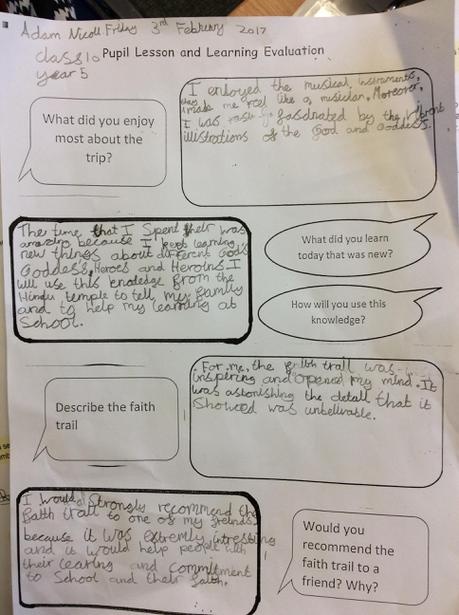 Adam Nicoll Friday 3rd February 2017
class 10
year 5
Pupil Lesson and Learning Evaluation
What did you enjoy
most about the
trip?
I enloyed the musical instruments,
they made me feel like a musician. Moreover,
I was fasdnated by the vibrant
illistrations of the God and Goddess.
The time that I Spent their was
amazing because I kept learning
new things about different Gods
Goddess, Heroes and Heroins. I
will use this knoledge from the
Hindu temple to tell my family
and to help my learning at
School.
What did you learn
today that was new?
How will you use this
knowledge?
Describe the faith
trail
For me, the faith trail was
inspering and opened my mind. It
was astonishing the detail that it
Showed was unbelivable.
I would Strongly recommend the
faith trail to one of my freinds
because it was extremly intresting
and it would help people with
their learing and commitment
to School and their faith.
Would you
recommend the
faith trail to a
friend? Why?